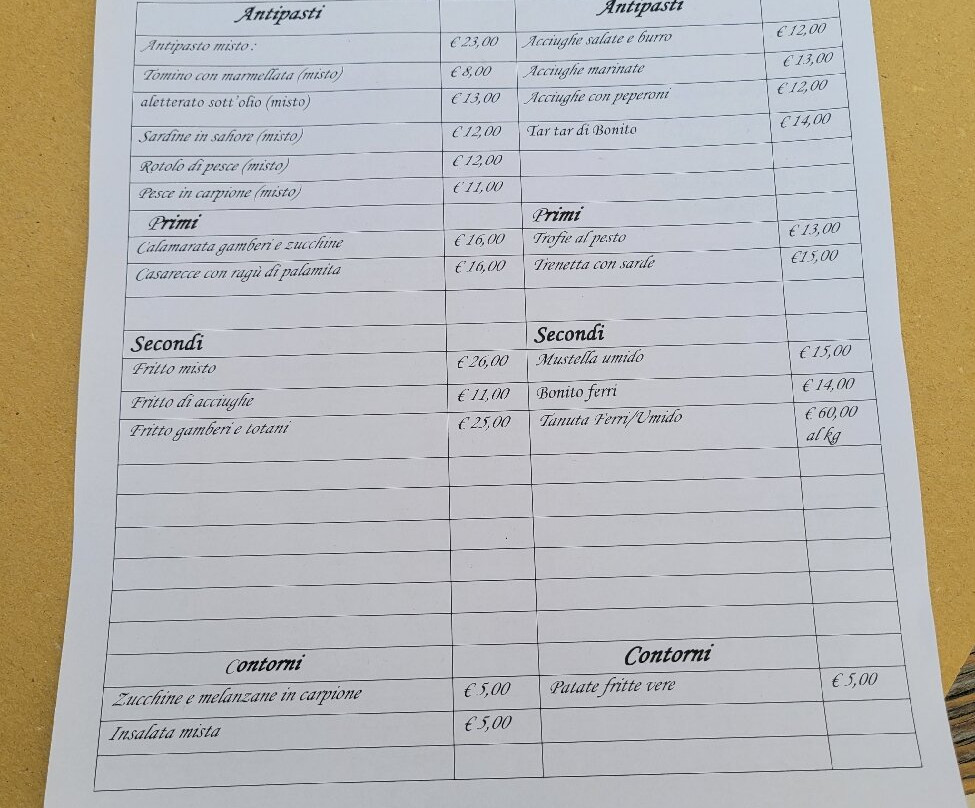 Antipasti Antipasti
Antipasto misto : € 23,00 Acciughe salate e burro € 12,00
Tomino con marmellata (misto) € 8,00 Acciughe marinate € 13,00
aletterato sott'olio (misto) € 13,00 Acciughe con peperoni € 12,00
Sardine in sahore (misto) € 12,00 Tar tar di Bonito € 14,00
Rotolo di pesce (misto) € 12,00
Pesce in carpione (misto) € 11,00
Primi Primi
Calamarata gamberi e zucchine € 16,00 Trofie al pesto € 13,00
Casarecce con ragù di palamita € 16,00 Trenetta con sarde €15,00
Secondi Secondi
Fritto misto € 26,00 Mustella umido € 15,00
Fritto di acciughe € 11,00 Bonito ferri € 14,00
Fritto gamberi e totani € 25,00 Tanuta Ferri/Umido € 60,00
al kg
Contorni Contorni
Zucchine e melanzane in carpione € 5,00 Patate fritte vere € 5,00
Insalata mista € 5,00